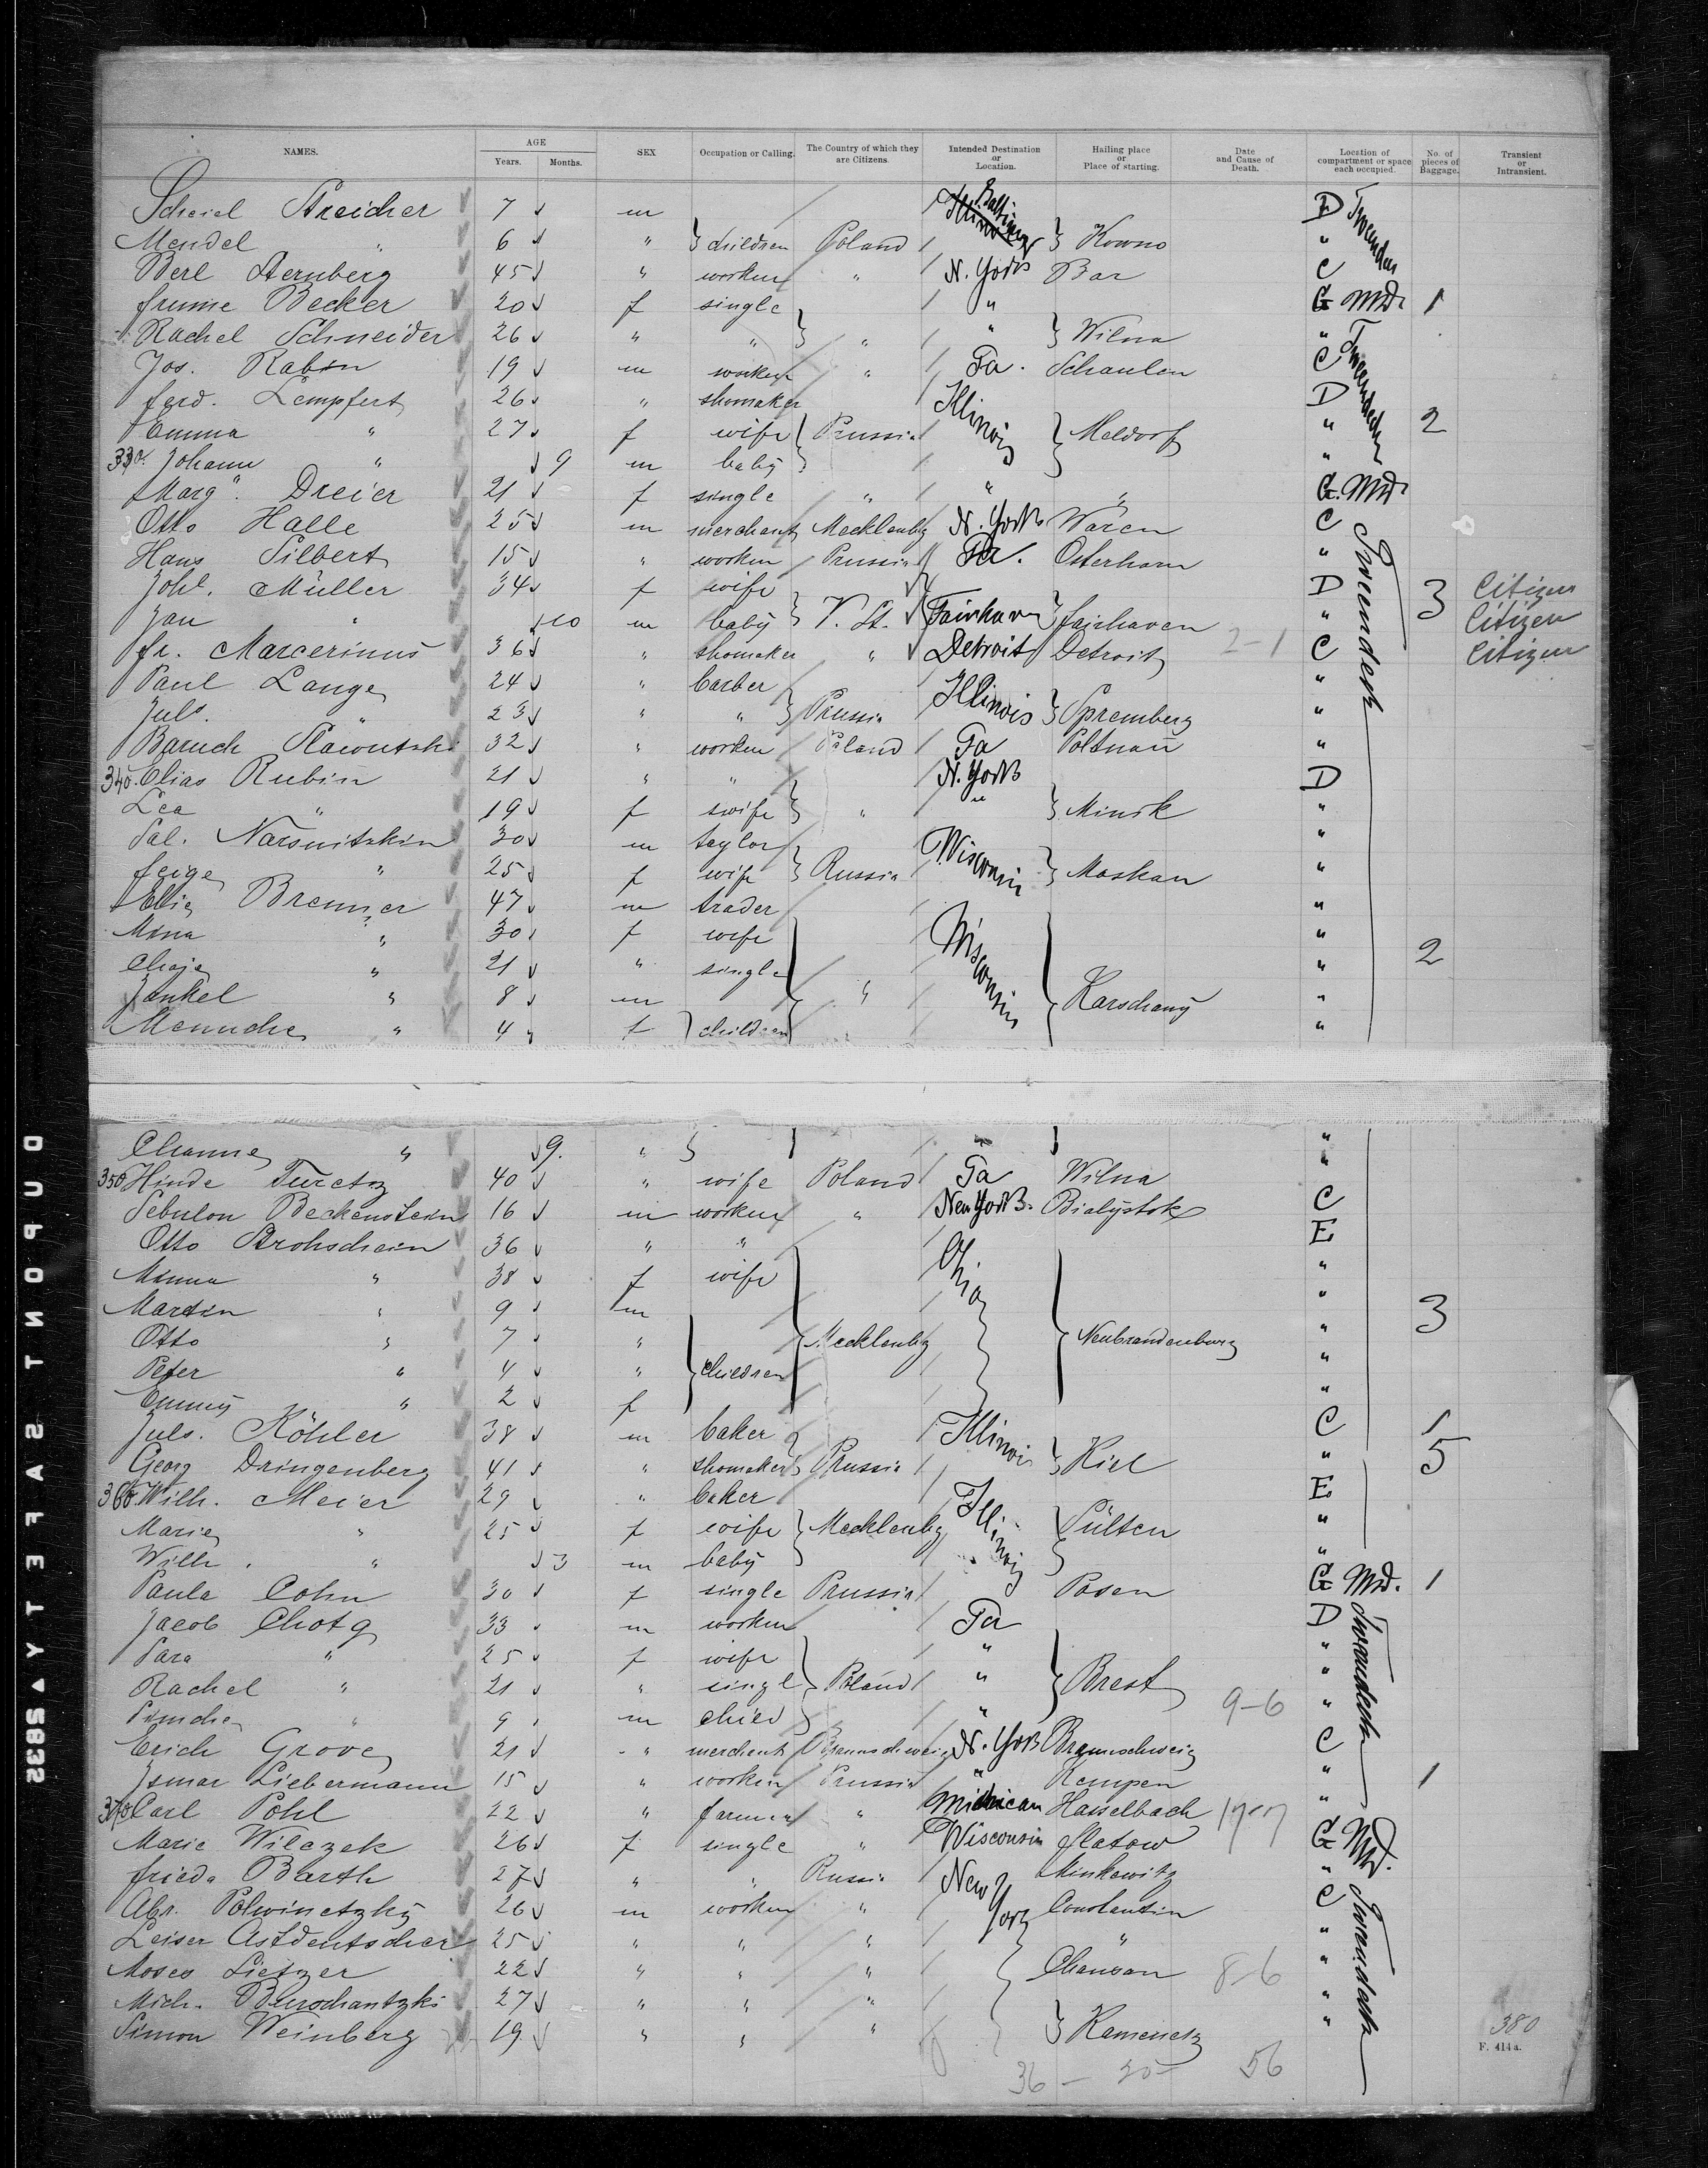 NAMES. AGE Years. Months. SEX Occupation or Calling. The Country of which they are Citizens. Intended Destination or Location. Hailing place or Place of starting. Date and Cause of Death. Location of compartment or space each occupied. No. of pieces of Baggage. Transient or Intransient.
Scheiel Streicher 7 m Baltimore D Tweendeck
Mendel " 6 " children Poland Kowno "
Berl Sternberg 45 " worker " N. York Bar C
Frume Becker 20 f single " G Md. 1
Rachel Schneider 26 " " " " Wilna "
Jos. Rabin 19 m worker " Pa. Schaulen C Tweendeck
Ferd. Lempfert 26 " shomaker Illinois D
Emma " 27 f wife Prussia Meldorf " 2
330. Johann " 9 m baby "
Marg. Dreier 21 f single " " " G. Md.
Otto Halle 25 m merchant Mecklenbg N. York Waren C Tweendeck
Hans Silbert 15 " worker Prussia Pa. Osterhorn "
Joh. Müller 34 f wife D 3 Citizen
Jan " 10 m baby V. St. Fairhaven Fairhaven " Citizen
Fr. Marcerinus 36 " shomaker " Detroit Detroit 2-1 C Citizen
Paul Lange 24 " barber Illinois "
Juls. " 23 " " Prussia Spremberg "
Baruch Slawutzki 32 " worker Poland Pa Poltnau "
340. Elias Rubin 21 " " N. York D
Lea " 19 f wife " " Minsk "
Sal. Narsnitzkin 30 m taylor Wisconsin "
Feige " 25 f wife Russia Moskau "
Elie Brenner 47 m trader "
Mina " 30 f wife Wisconsin "
Chaje " 21 " single " 2
Jankel " 8 m " Karschany "
Menuche " 4 f children "
Channe " 9. " " "
350 Hinde Turetz 40 " wife Poland Pa Wilna "
Sebulon Beckenstein 16 m worker " New York. Bialystok C
Otto Strohschein 36 " " Ohio E
Minna " 38 f wife "
Martin " 9 m " 3
Otto " 7 " Mecklenbg Neubrandenburg "
Peter " 4 " children "
Emmy " 2 f "
Juls. Köhler 38 m baker Illinois C 1
Georg Dringenberg 41 " shomaker Prussia Kiel " 5
360. Wilh. Meier 29 " baker Illinois E
Marie " 25 f wife Mecklenbg Sülten "
Wilh. " 3 m baby "
Paula Cohn 30 f single Prussia Posen G Md. 1
Jacob Chotg 33 m worker Pa D Tweendeck
Sara " 25 f wife " "
Rachel " 21 " singl Poland " Brest "
Simche " 9 m chied " 9-6 "
Erich Grove 21 " merchant Braunschweig N. York Braunschweig C
Ismar Liebermann 15 " worker Prussia " Kempen " 1
370 Carl Pohl 22 " farmer " Michican Hasselbach "
Marie Wilczek 26 f single " Wisconsin Flatow G Md.
Frieda Barth 27 " " Russia New York Minkewitz "
Abr. Polwinetzky 26 m worker " Constantin C Tweendeck
Leiser Astdeutscher 25 " " " " "
Moses Lietzer 22 " " " Chausan 8-6 "
Mich. Burschantzki 27 " " " "
Simon Weinberg 19 " " " Kamenetz "
380
F. 414a.
36 - 20 - 56
DUPONT SAFETY 5832